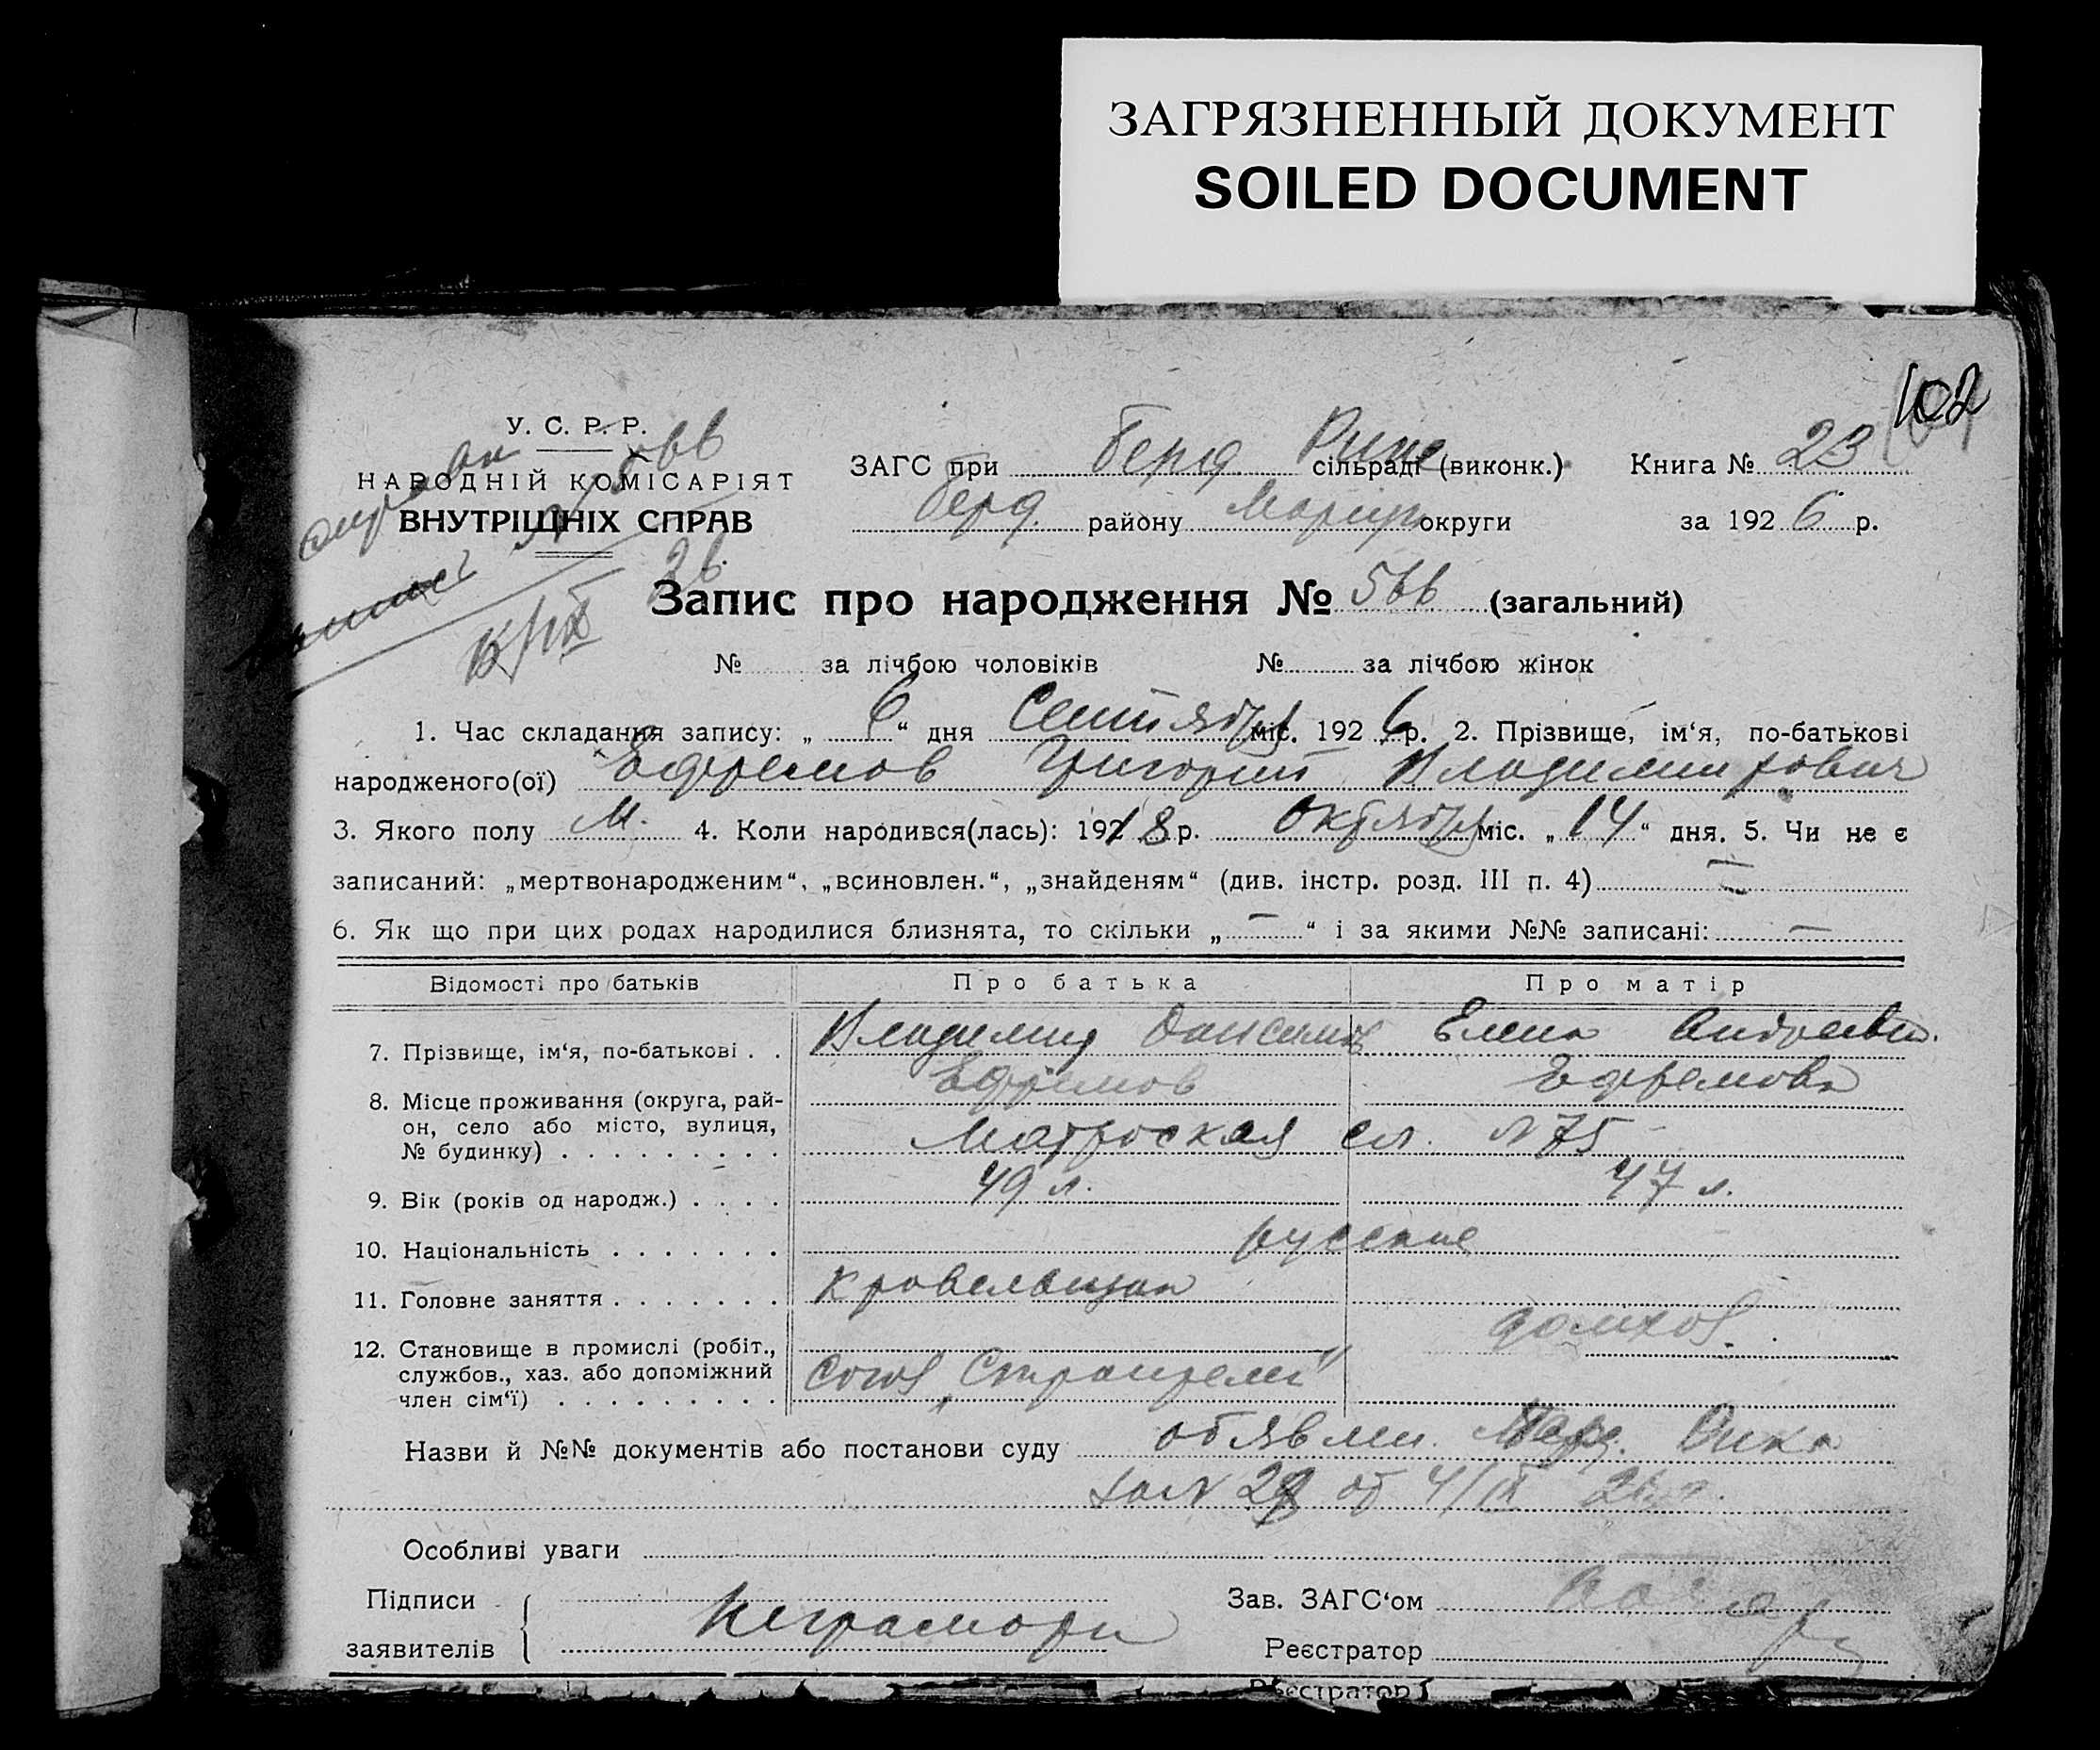 ЗАГРЯЗНЕННЫЙ ДОКУМЕНТ
SOILED DOCUMENT
102
У. С. Р. Р.
НАРОДНІЙ КОМІСАРІЯТ
ВНУТРІШНІХ СПРАВ
ЗАГС при Берд Рике сільраді (виконк.) Книга № 23
Берд. району Маріуп округи за 1926 р.
Запис про народження № 566 (загальний)
№ за лічбою чоловіків № за лічбою жінок
1. Час складання запису: „ 6 “ дня Сентября міс. 1926 р. 2. Прізвище, ім‘я, по-батькові
народженого(ої) Ефремов Григорий Владимирович
3. Якого полу М. 4. Коли народився(лась): 1918 р. Октября міс. „ 14 “ дня. 5. Чи не є
записаний: „мертвонародженим“, „всиновлен.“, „знайденям“ (див. інстр. розд. III п. 4) —
6. Як що при цих родах народилися близнята, то скільки „ — “ і за якими №№ записані: —
Відомості про батьків Про батька Про матір
7. Прізвище, ім‘я, по-батькові . . Владимир Елена Андреевн.
Ефремов Ефремова
8. Місце проживання (округа, рай-
он, село або місто, вулиця,
№ будинку) . . . . . . . . . Матроская сл. № 75
9. Вік (років од народж.) . . . . 49 л. 47 л.
10. Національність . . . . . . . русские
11. Головне заняття . . . . . . . кровельщик
домхоз.
12. Становище в промислі (робіт.,
службов., хаз. або допоміжний
член сім‘ї) . . . . . . . . . союз „Строителей“
Назви й №№ документів або постанови суду Берд. Рика
от 4/IX 26
Особливі уваги
Підписи
заявителів неграмотн
Зав. ЗАГС‘ом
Реєстратор
Реєстратор